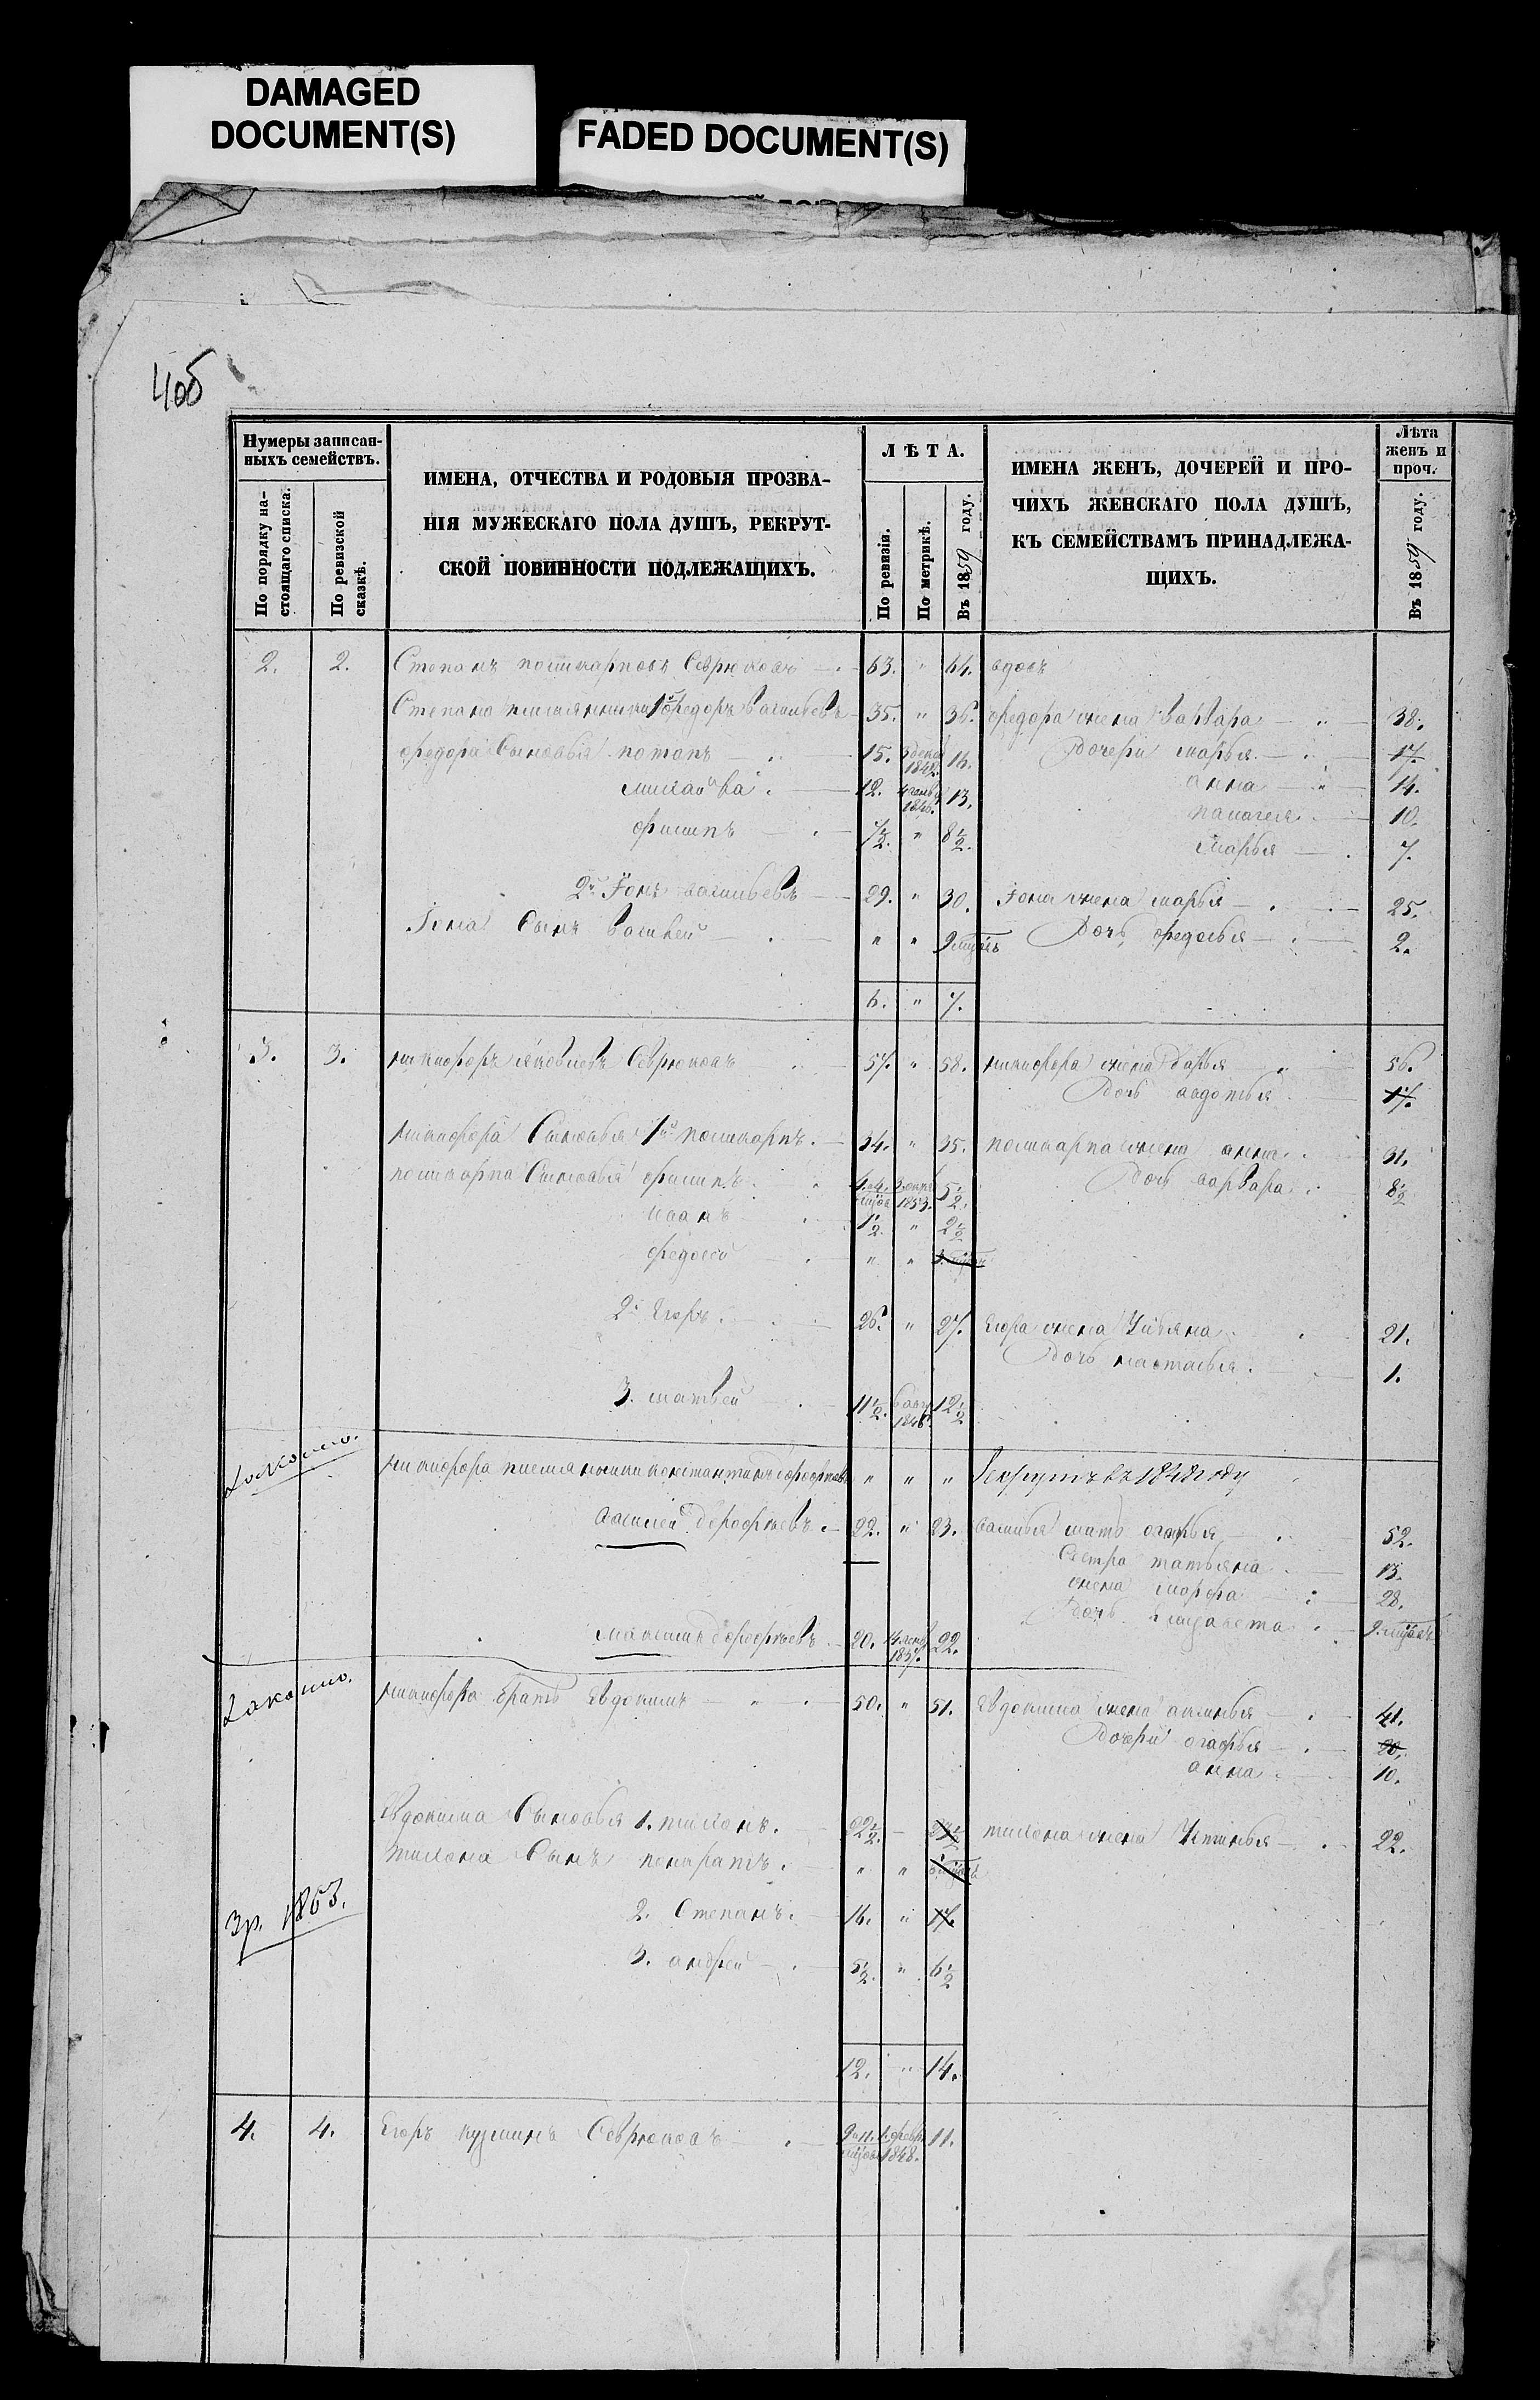 DAMAGED
DOCUMENT(S)
FADED DOCUMENT(S)
Нумеры записан-
ныхъ семействъ.
По порядку на-
стоящаго списка.
По ревизской
сказкѣ.
ИМЕНА, ОТЧЕСТВА И РОДОВЫЯ ПРОЗВА-
НІЯ МУЖЕСКАГО ПОЛА ДУШЪ, РЕКРУТ-
СКОЙ ПОВИННОСТИ ПОДЛЕЖАЩИХЪ.
ЛѢТА.
По ревизіи.
По метрикѣ.
Въ 1859 году.
ИМЕНА ЖЕНЪ, ДОЧЕРЕЙ И ПРО-
ЧИХЪ ЖЕНСКАГО ПОЛА ДУШЪ,
КЪ СЕМЕЙСТВАМЪ ПРИНАДЛЕЖА-
ЩИХЪ.
Лѣта
женъ и
проч.
Въ 1859 году.
2. 2. Степанъ Севрюковъ 63. " 64. вдовъ
Степана племянники 1й федоръ васильевъ 35. " 36. федора жена варвара 38.
федора сыновья потапъ 15. 1842. 16. Дочери марья 17.
михайла 12. 1846. 13. анна 14.
филипъ 7½. " 8½. пелагея 10.
марья 7.
2й Іонъ васильевъ 29. " 30. Іона жена марья 25.
Іона Сынъ василей " " 9 Дочь федосья 2.
6. " 7.
3. 3. никифоръ яковлевъ Севрюковъ 57. " 58. никифора жена дарья 56.
Дочь авдотья 17.
никифора Сыновья 1й поликарпъ 34. " 35. поликарпа жена анна 31.
поликарпа Сыновья филипъ 1853. 5½. Дочь варвара 8½
иванъ 1½. " 2½
федосей " "
2й Егоръ 26. " 27. Егора жена Ульяна 21.
Дочь настасья 1.
3. матвей 11½. 1846. 12½
никифора племянники константинъ " " " Рекрутъ въ 1848 году
василей дорофѣевъ 22. " 23. василья мать 52.
Сестра татьяна 13.
жена марфа 28.
Дочь Елизавета 9
максимъ дорофѣевъ 20. 1837. 22.
никифора братъ Евдокимъ 50. " 51. Евдокима жена аксинья 41.
Дочери агафья 20.
анна 10.
Евдокима Сыновья 1. тихонъ. 22½. тихона жена Устинья 22.
тихона Сынъ " "
Зр. 1863.
2. Степанъ. 16. " 17.
3. андрей 5½. " 6½
12. " 14.
4. 4. Егоръ кузминъ Севрюковъ 1848. 11.